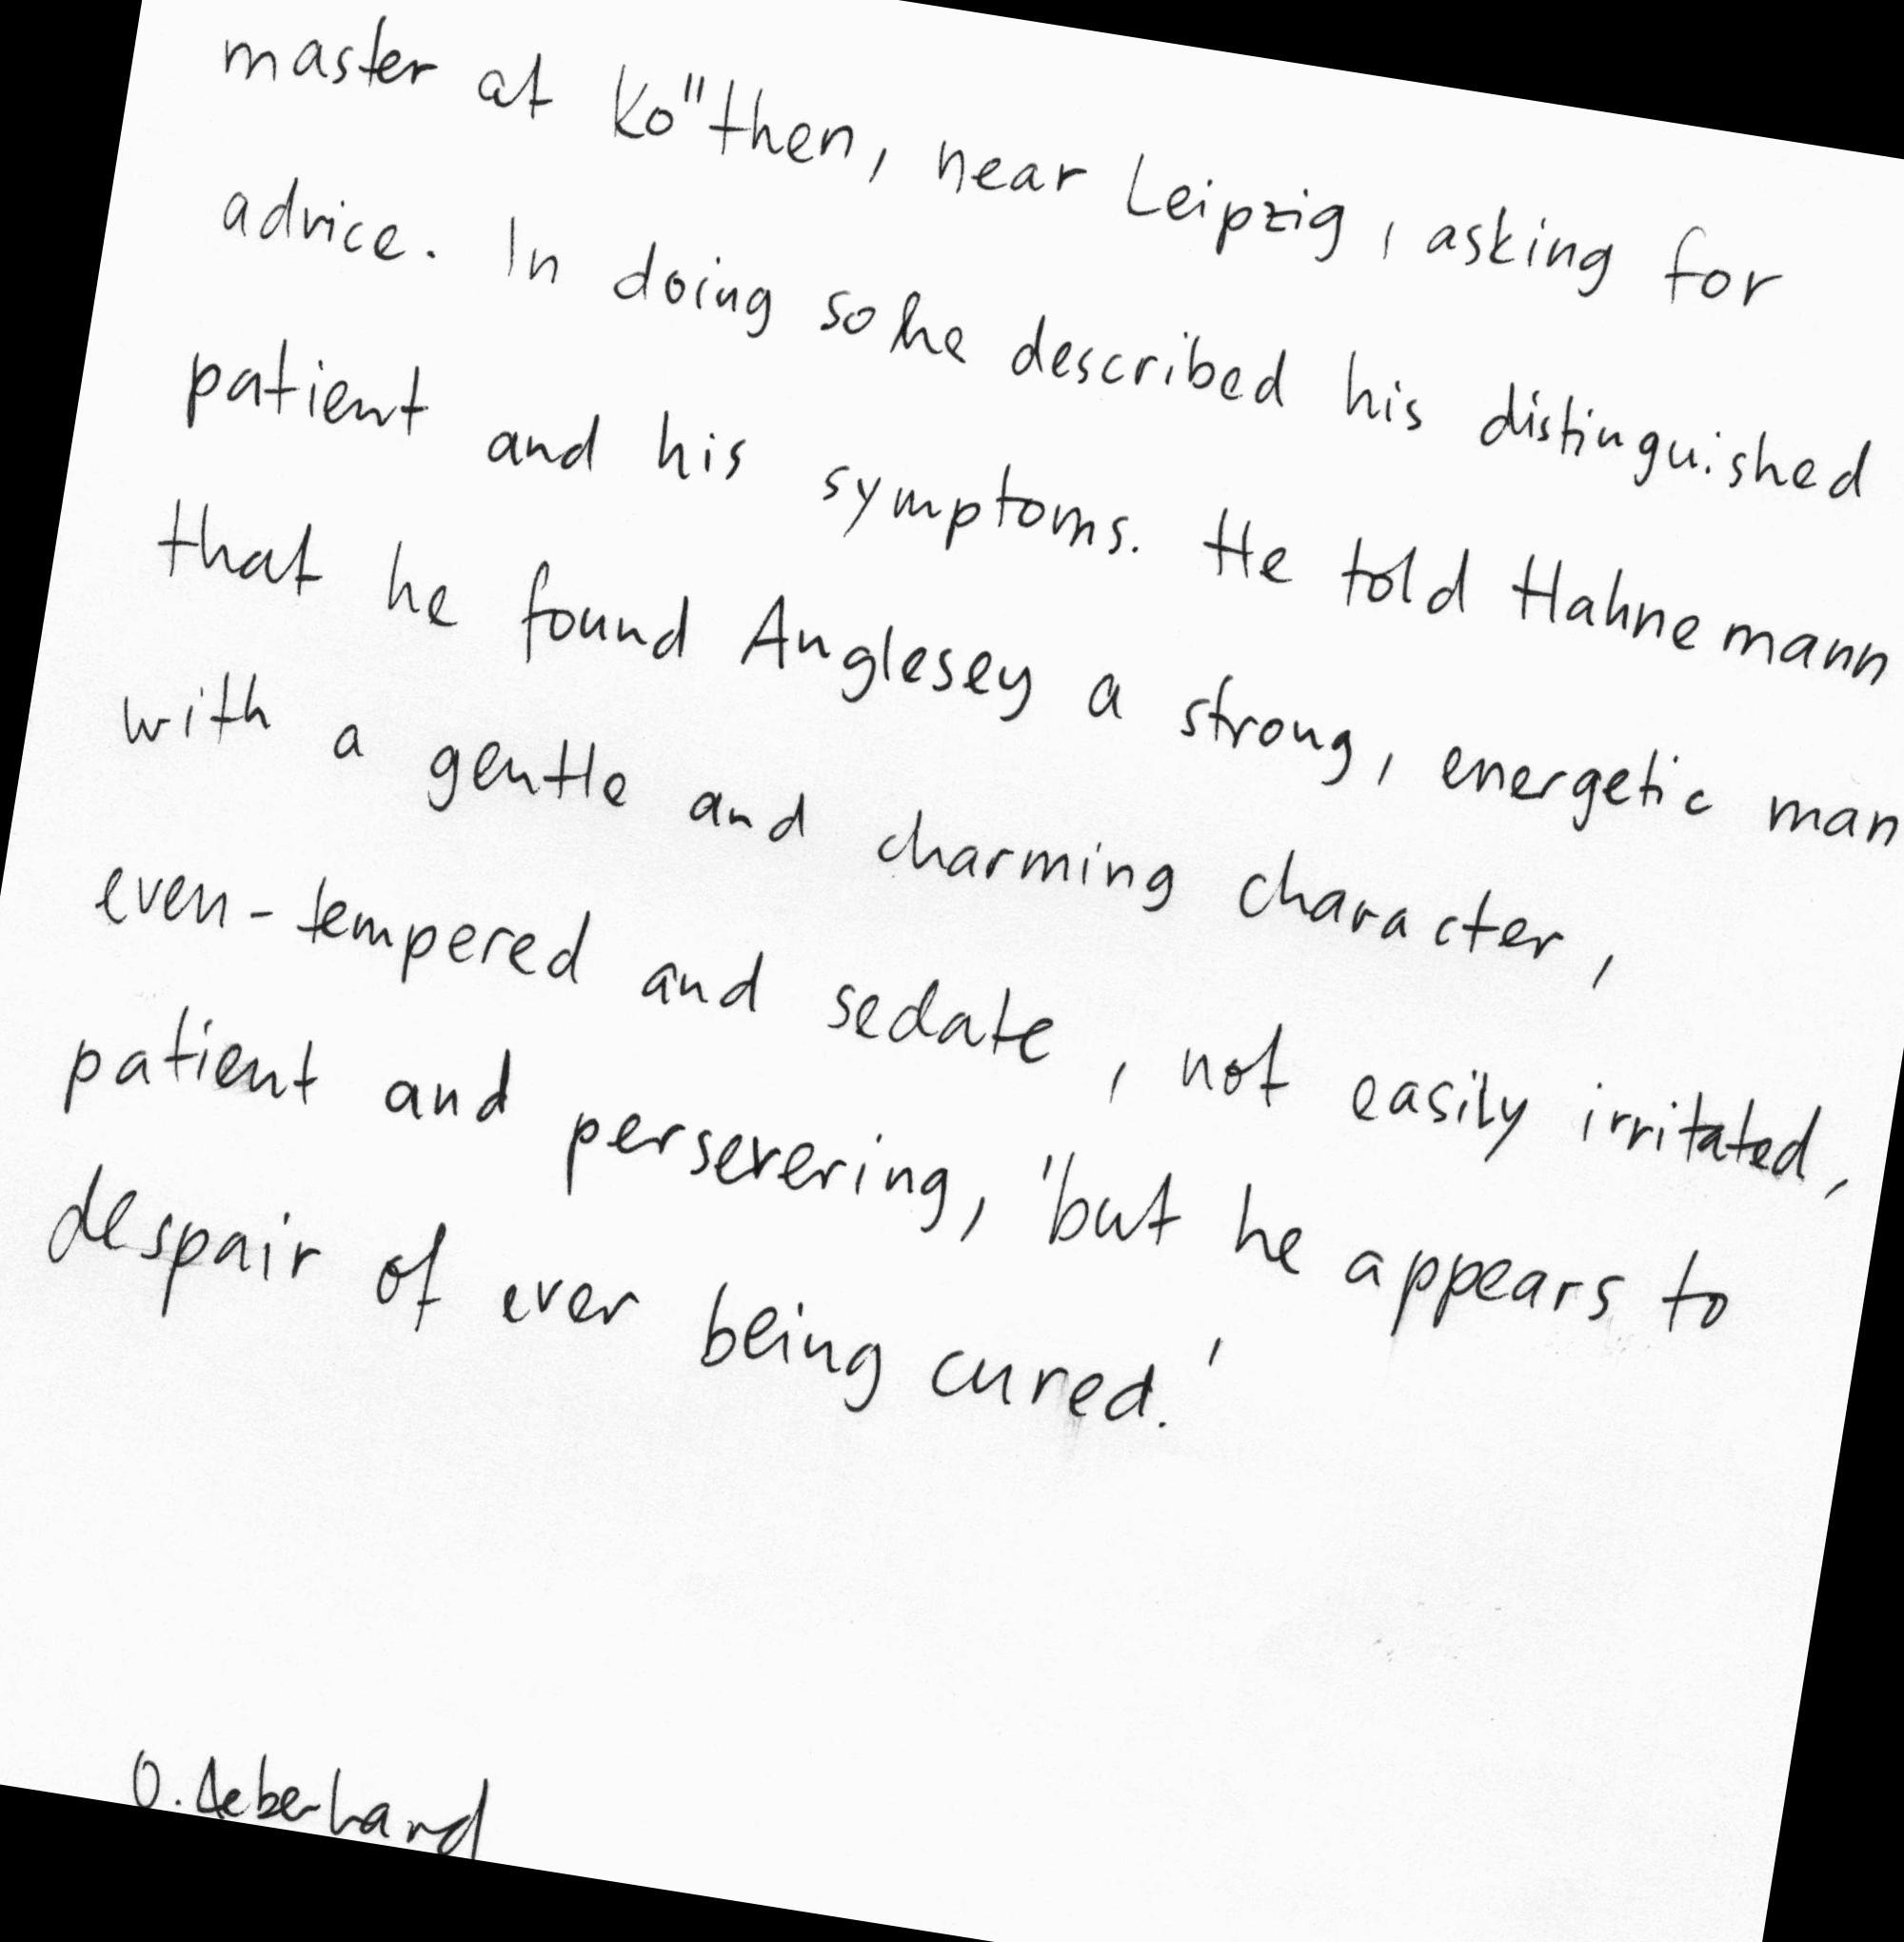 master at Ko"then, near Leipzig, asking for
advice. In doing so he described his distinguished
patient and his symptoms. He told Hahnemann
that he found Anglesey a strong, energetic man
with a gentle and charming character,
even-tempered and sedate, not easily irritated,
patient and persevering, 'but he appears to
despair of ever being cured.'
O. Aeberhard